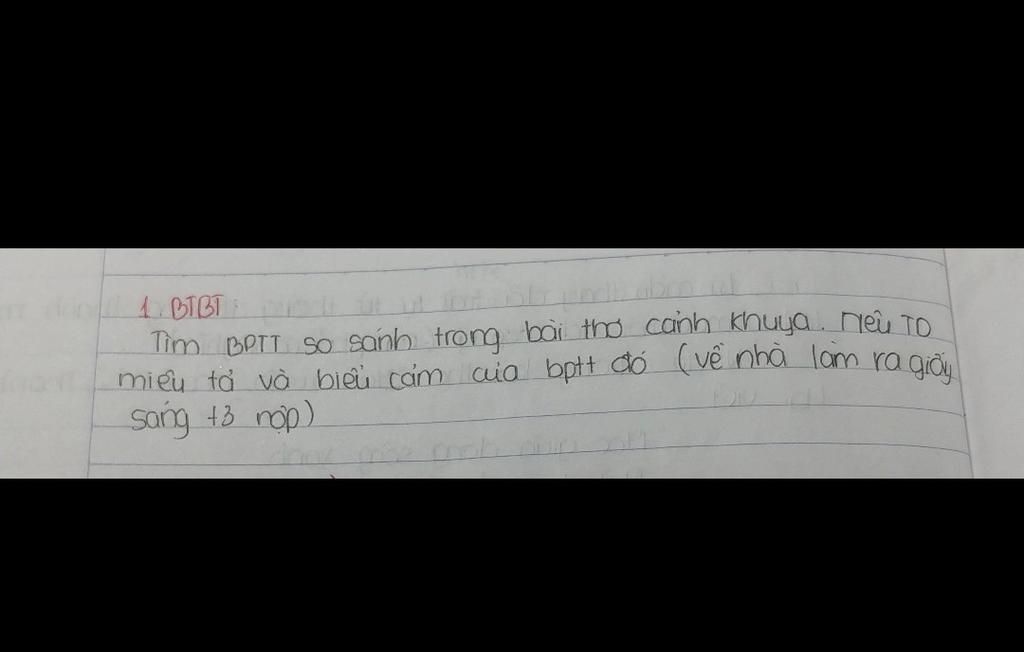 1. BTBT:
Tìm BPTT so sánh trong bài thơ cảnh khuya. Nêu TD
miêu tả và biểu cảm của bptt đó (về nhà làm ra giấy
sáng t3 nộp)